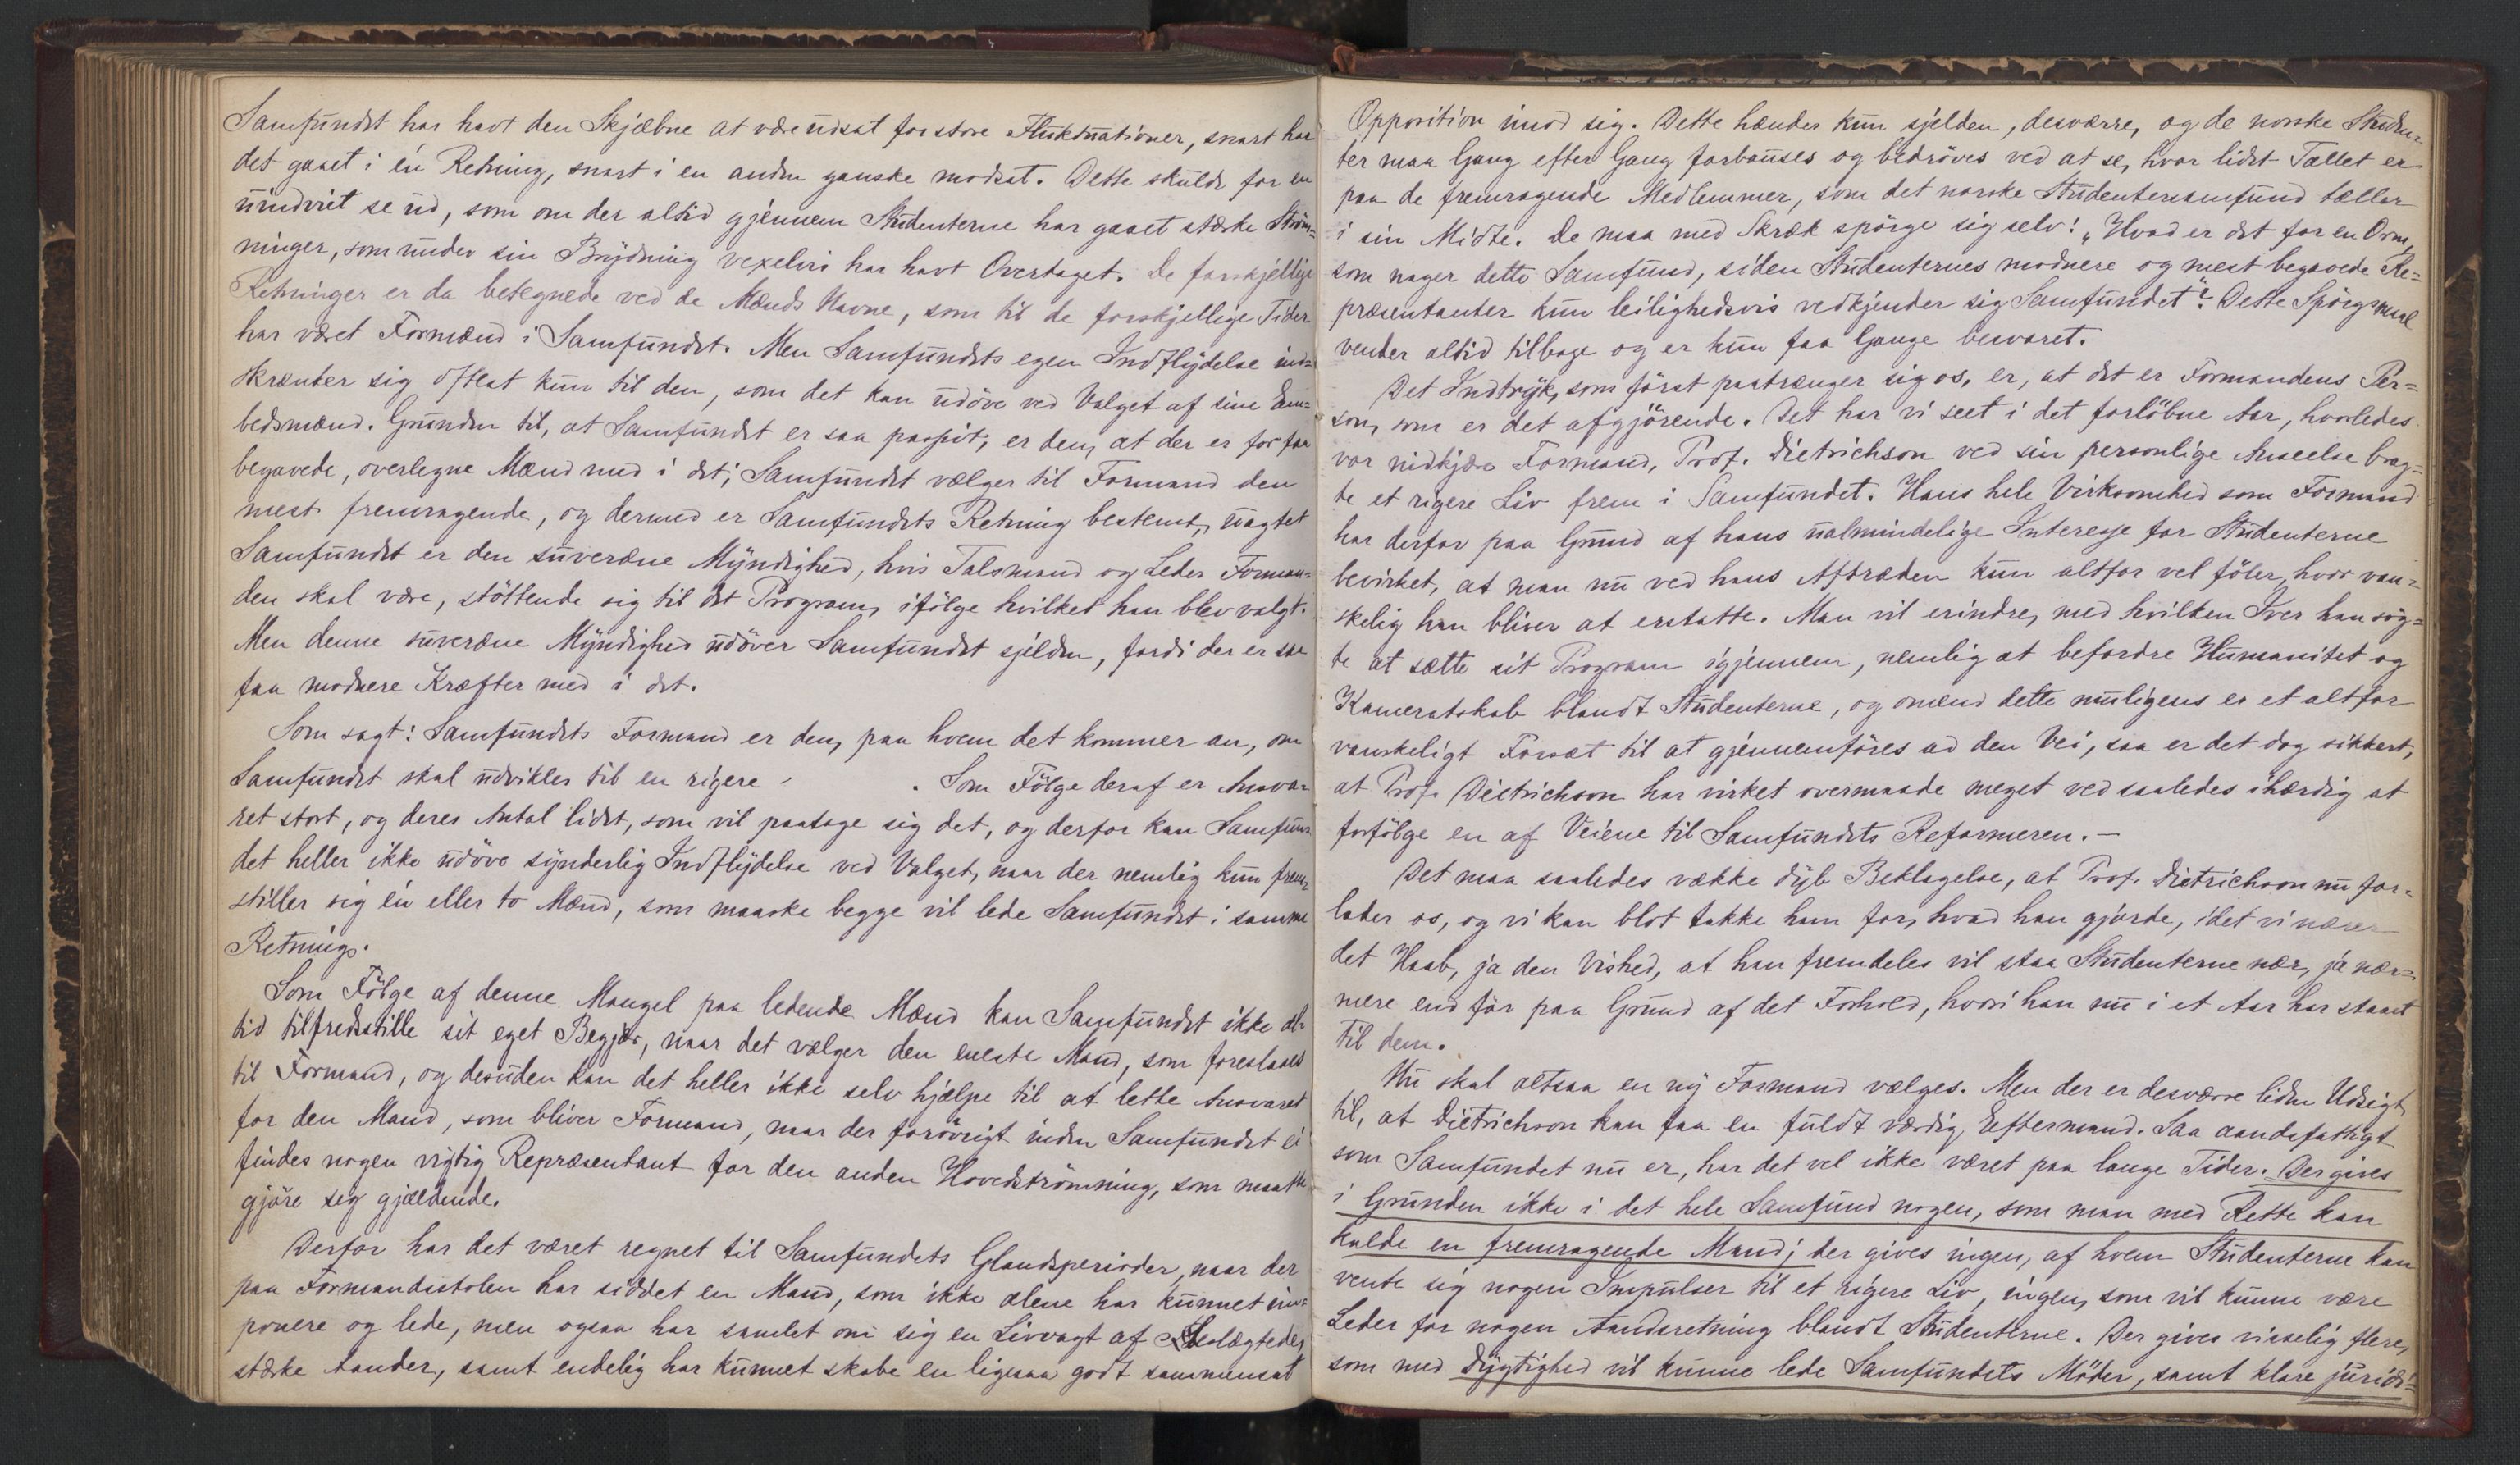 Samfundet har havt den Skjæbne at være udsat for store Fluktuationer, snart har
det gaaet i én Retning, snart i en anden ganske modsat. Dette skulde for en
uindviet se ud, som om der altid gjennem Studenterne har gaaet stærke Strøm-
ninger, som under sin Brydning vexelvis har havt Overtaget. De forskjellige
Retninger er da betegnede ved de Mænds Navne, som til de forskjellige Tider
har været Formænd i Samfundet. Men Samfundets egen Indflydelse ind-
skrænker sig oftest kun til den, som det kan udöve ved Valget af sine Em-
bedsmænd. Grunden til, at Samfundet er saa passivt, er den, at der er for faa
begavede, overlegne Mænd med i det; Samfundet vælger til Formand den
mest fremragende, og dermed er Samfundets Retning bestemt, uagtet
Samfundet er den suveræne Myndighed, hvis Talsmand og Leder Forman-
den skal være, stöttende sig til det Program, ifölge hvilket han blev valgt.
Men denne suveræne Myndighed udöver Samfundet sjelden, fordi der er saa
faa modnere Kræfter med i det.
Som sagt: Samfundets Formand er den, paa hvem det kommer an, om
Samfundet skal udvikles til en rigere . Som Fölge deraf er Ansva-
ret stort, og deres Antal lidet, som vil paatage sig det, og derfor kan Samfun-
det heller ikke udöve synderlig Indflydelse ved Valget, naar der nemlig kun frem-
stiller sig én eller to Mænd, som maaske begge vil lede Samfundet i samme
Retning.
Som Fölge af denne Mangel paa ledende Mænd kan Samfundet ikke al-
tid tilfredsstille sit eget Begjær, naar det vælger den eneste Mand, som foreslaaes
til Formand, og desuden kan det heller ikke selv hjælpe til at lette Ansvaret
for den Mand, som bliver Formand, naar der forövrigt inden Samfundet ei
findes nogen vigtig Repræsentant for den anden Hovedströmning, som maatte
gjöre sig gjældende.
Derfor har det været regnet til Samfundets Glandsperioder, naar der
paa Formandsstolen har siddet en Mand, som ikke alene har kunnet im-
ponere og lede, men ogsaa har samlet om sig en Livvagt af beslægtede,
stærke Aander, samt endelig har kunnet skabe en ligesaa godt sammensat
Opposition imod sig. Dette hænder kun sjelden, desværre, og de norske Studen-
ter maa Gang efter Gang forbauses og bedröves ved at se, hvor lidet Tallet er
paa de fremragende Medlemmer, som det norske Studentersamfund tæller
i sin Midte. De maa med Skræk spörge sig selv: "Hvad er det for en Orm,
som nager dette Samfund, siden Studenternes modnere og mest begavede Re-
præsentanter kun leilighedsvis vedkjender sig Samfundet"? Dette Spörgsmaal
vender altid tilbage og er kun faa Gange besvaret.
Det Indtryk, som först paatrænger sig os, er, at det er Formandens Per-
son, som er det afgjörende. Det har vi seet i det forlöbne Aar, hvorledes
vor nidkjære Formand, Prof. Dietrichson ved sin personlige Anseelse brag-
te et rigere Liv frem i Samfundet. Hans hele Virksomhed som Formand
har derfor paa Grund af hans ualmindelige Interesse for Studenterne
bevirket, at man nu ved hans Aftræden kun altfor vel föler, hvor van-
skelig han bliver at erstatte. Man vil erindre, med hvilken Iver han sög-
te at sætte sit Program igjennem, nemlig at befordre Humanitet og
Kameratskab blandt Studenterne, og omend dette muligens er et altfor
vanskeligt Forsæt til at gjennemföres ad den Vei, saa er det dog sikkert,
at Prof. Dietrichson har virket overmaade meget ved saaledes ihærdig at
forfölge en af Veiene til Samfundets Reformeren. —
Det maa saaledes vække dyb Beklagelse, at Prof. Dietrichson nu for-
lader os, og vi kan blot takke ham for, hvad han gjorde, idet vi nærer
det Haab, ja den Vished, at han fremdeles vil staa Studenterne nær, ja nær-
mere end för paa Grund af det Forhold, hvori han nu i et Aar har staaet
til dem.
Nu skal altsaa en ny Formand vælges. Men der er desværre liden Udsigt
til, at Dietrichson kan faa en fuldt værdig Eftermand. Saa aandsfattigt
som Samfundet nu er, har det vel ikke været paa lange Tider. Der gives
i Grunden ikke i det hele Samfund nogen, som man med Rette kan
kalde en fremragende Mand; der gives ingen, af hvem Studenterne kan
vente sig nogen Impulser til et rigere Liv, ingen, som vil kunne være
Leder for nogen Aandsretning blandt Studenterne. Der gives visselig flere,
som med Dygtighed vil kunne lede Samfundets Möder, samt klare juridi-